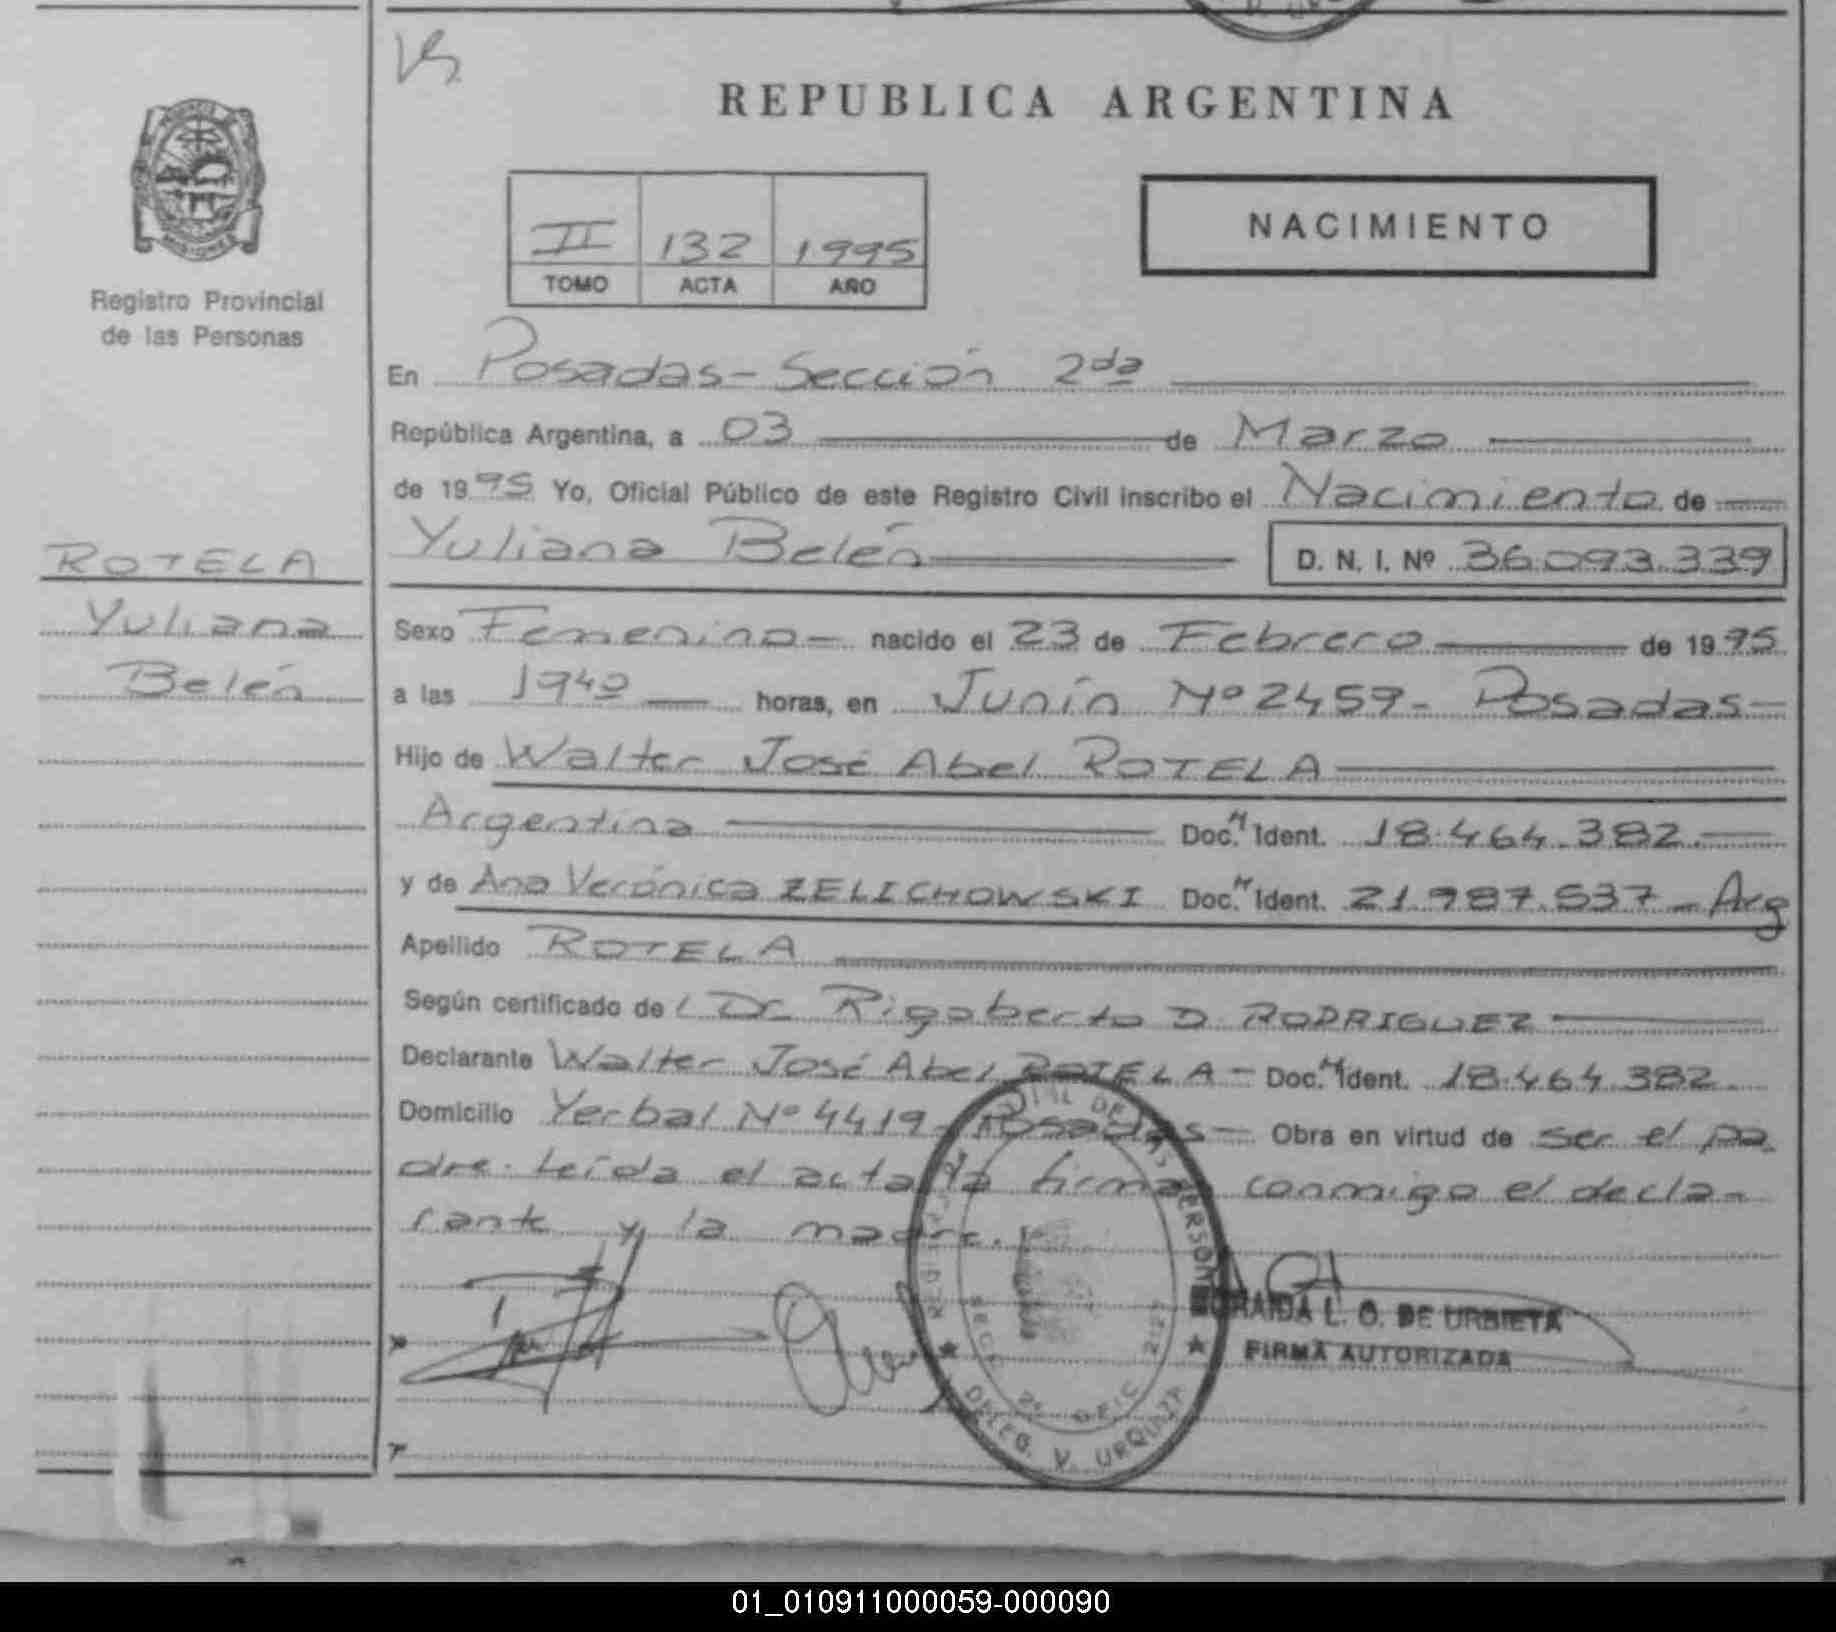 REPUBLICA ARGENTINA
II 132 1995
TOMO ACTA AÑO
NACIMIENTO
Registro Provincial
de las Personas
ROTELA
Yuliana
Belén
En Posadas - Sección 2da
República Argentina, a 03 de Marzo
de 1995 Yo, Oficial Público de este Registro Civil inscribo el Nacimiento de
Yuliana Belén D. N. I. Nº 36.093.339
Sexo Femenino - nacido el 23 de Febrero de 1995
a las 19 40 horas, en Junín Nº 2459 - Posadas -
Hijo de Walter José Abel ROTELA
Argentina Doc. M Ident. 18.464.382.
y de Ana Verónica ZELICHOWSKI Doc. M Ident. 21.987.537 - Arg
Apellido ROTELA
Según certificado de l Dr Rigoberto D. RODRIGUEZ
Declarante Walter José Abel ROTELA - Doc. M Ident. 18.464.382.
Domicilio Yerbal Nº 4419 - Posadas - Obra en virtud de ser el pa-
dre. Leída el acta la firma conmigo el decla-
rante y la madre.
DE LAS PERSONAS
DELEG. V. URQUIZA
L. G. DE URBIETA
FIRMA AUTORIZADA
01_010911000059-000090